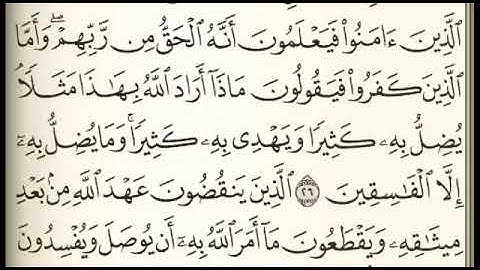 الَّذِينَ ءَامَنُوا۟ فَيَعْلَمُونَ أَنَّهُ الْحَقُّ مِن رَّبِّهِمْ ۖ وَأَمَّا
الَّذِينَ كَفَرُوا۟ فَيَقُولُونَ مَاذَآ أَرَادَ اللَّهُ بِهَٰذَا مَثَلًا ۘ
يُضِلُّ بِهِۦ كَثِيرًا وَيَهْدِى بِهِۦ كَثِيرًا ۚ وَمَا يُضِلُّ بِهِۦٓ
إِلَّا الْفَٰسِقِينَ ٢٦ الَّذِينَ يَنقُضُونَ عَهْدَ اللَّهِ مِنۢ بَعْدِ
مِيثَٰقِهِۦ وَيَقْطَعُونَ مَآ أَمَرَ اللَّهُ بِهِۦٓ أَن يُوصَلَ وَيُفْسِدُونَ